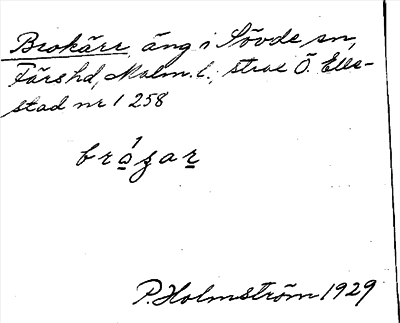 Brokärr, äng i Sövde sn,
Färs hd, Malm. l., strax Ö. Elle-
stad nr 1 258
brogar
P. Holmström 1929